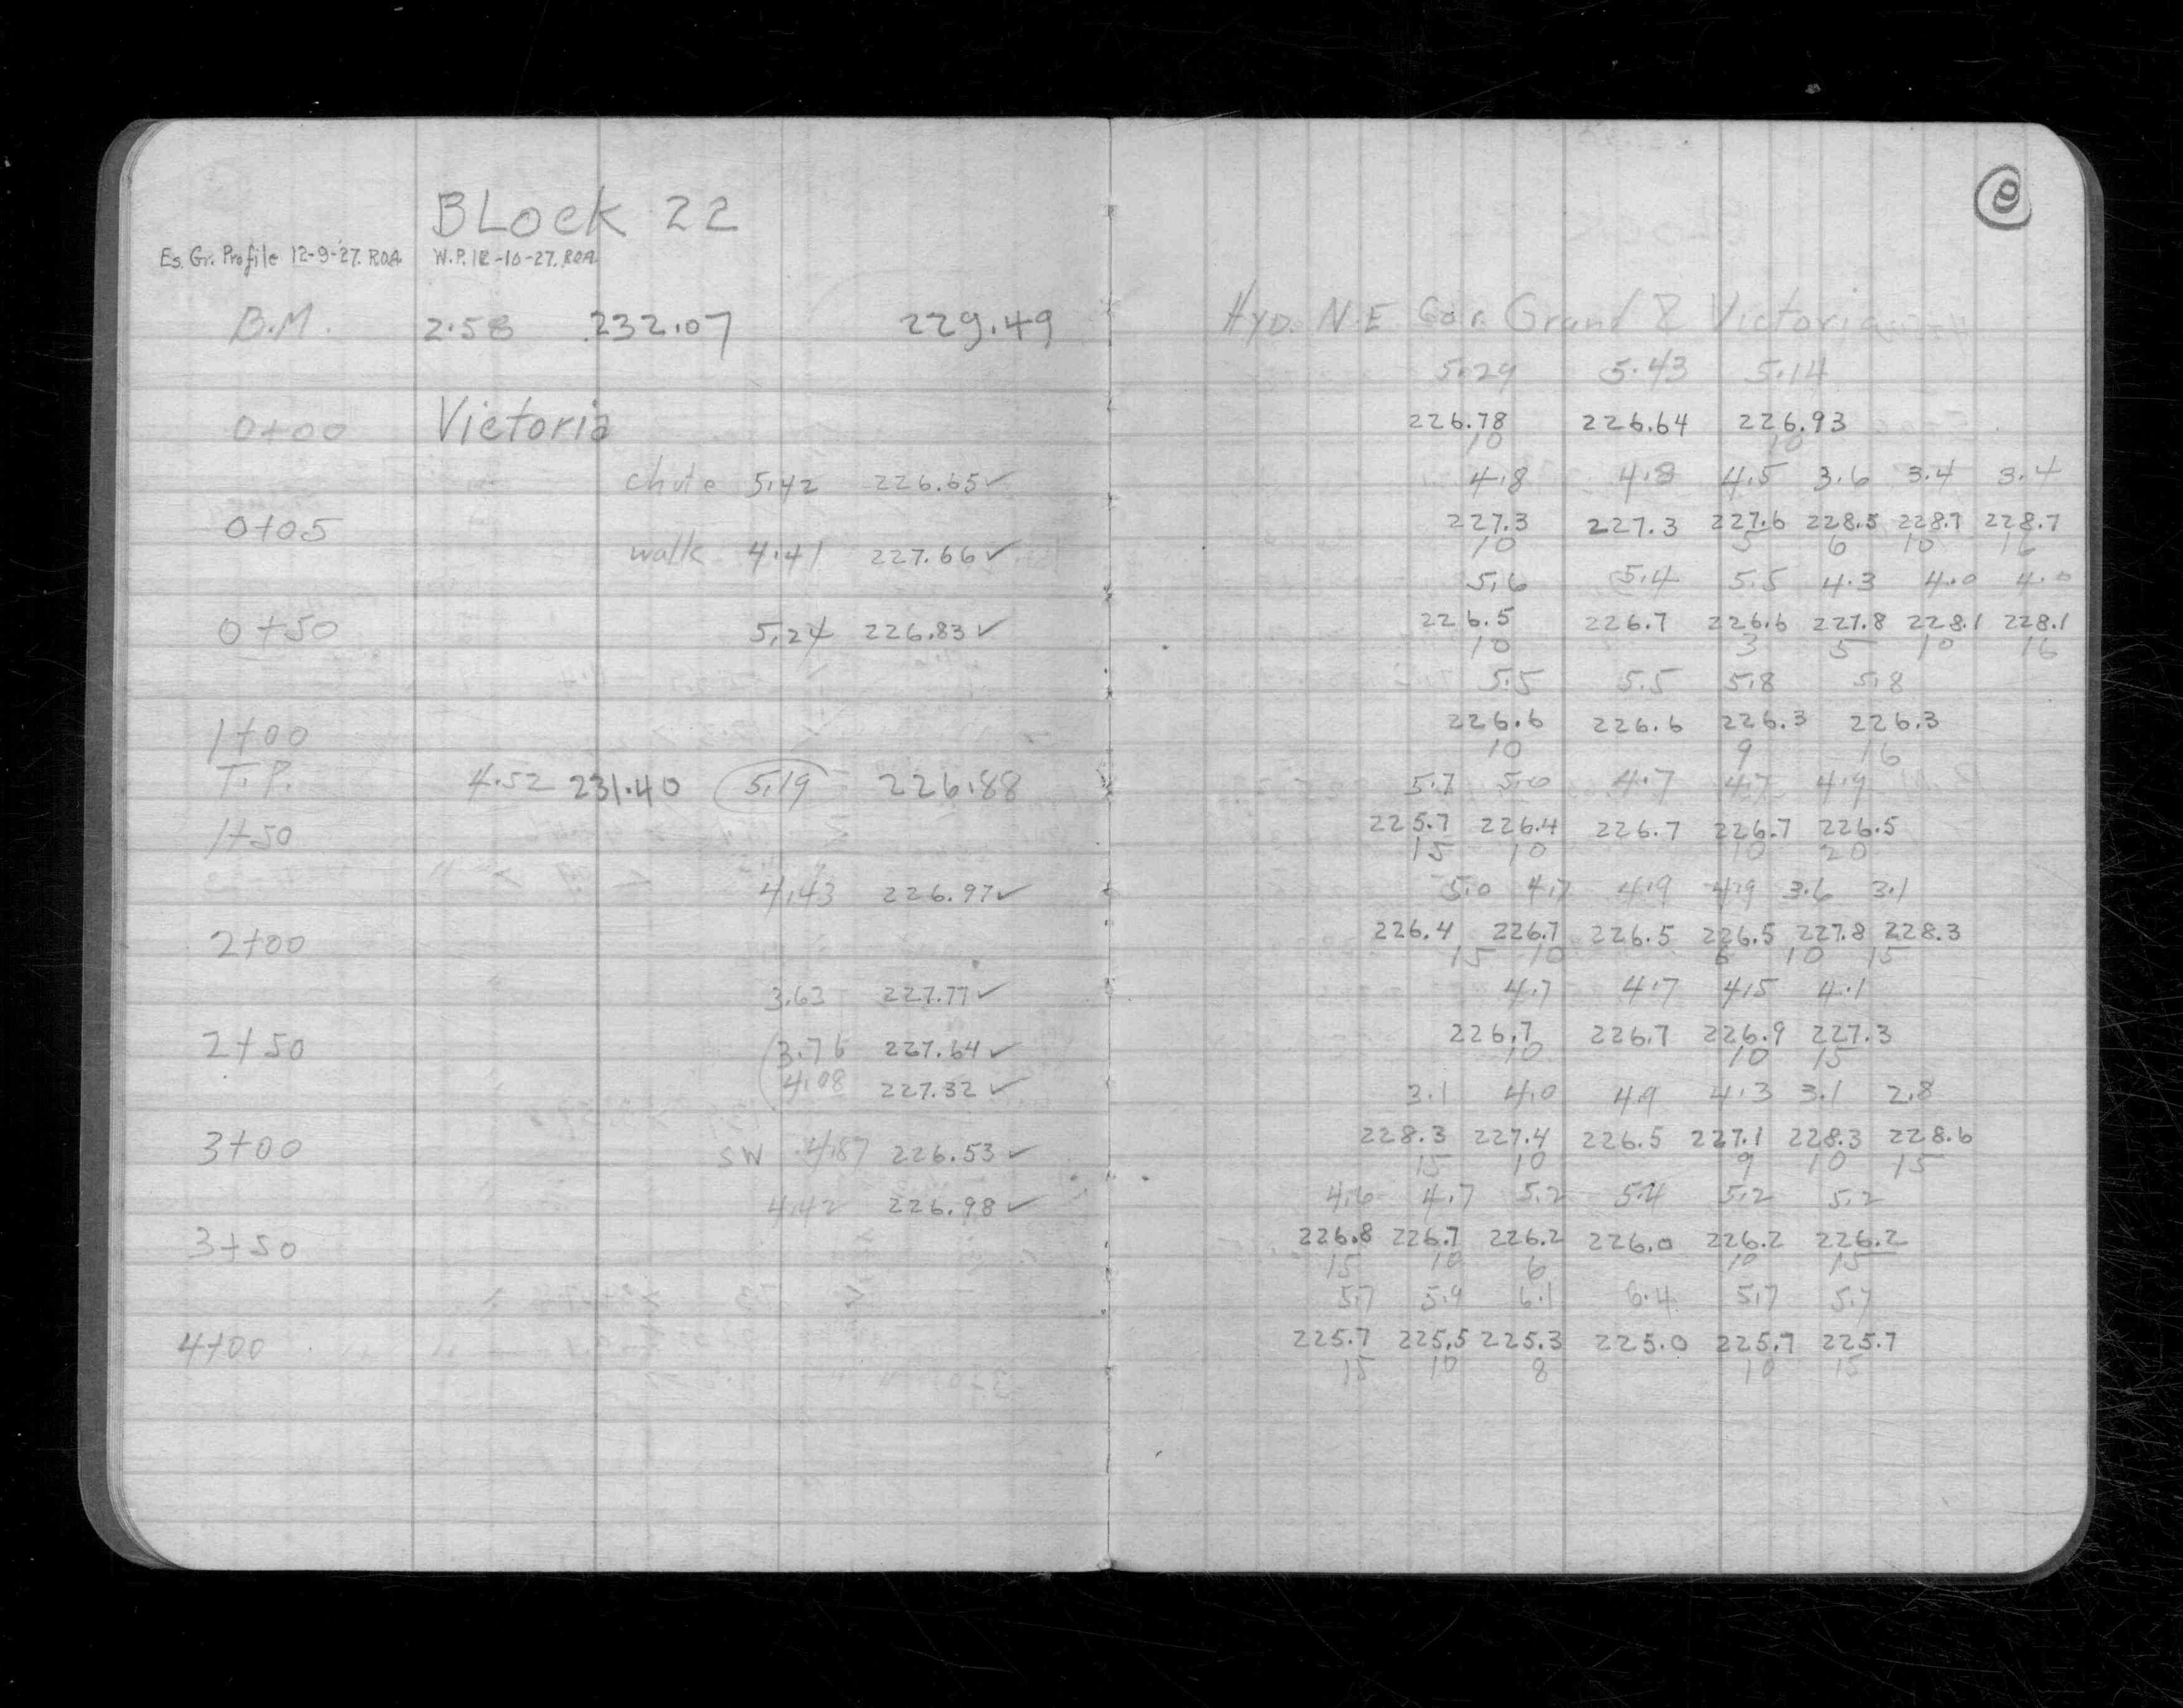 BLock 22
Es. Gr. Profile 12-9-'27. ROA. W.P. 12-10-27. ROA.
B.M. 2.58 232.07 229.49
0+00 Victoria
chute 5.42 226.65 ✓
0+05
walk 4.41 227.66 ✓
0+50 5.24 226.83 ✓
1+00
T.P. 4.52 231.40 5.19 226.88
1+50
4.43 226.97 ✓
2+00
3.63 227.77 ✓
2+50 3.76 227.64 ✓
4.08 227.32 ✓
3+00 SW 4.87 226.53 ✓
4.42 226.98 ✓
3+50
4+00
Hyd. N.E Cor. Grand & Victoria
5.29 5.43 5.14
226.78 226.64 226.93
10 10
4.8 4.8 4.5 3.6 3.4 3.4
227.3 227.3 227.6 228.5 228.7 228.7
10 5 6 10 16
5.6 5.4 5.5 4.3 4.0 4.0
226.5 226.7 226.6 227.8 228.1 228.1
10 3 5 10 16
5.5 5.5 5.8 5.8
226.6 226.6 226.3 226.3
10 9 16
5.7 5.0 4.7 4.7 4.9
225.7 226.4 226.7 226.7 226.5
15 10 10 20
5.0 4.7 4.9 4.9 3.6 3.1
226.4 226.7 226.5 226.5 227.8 228.3
15 10 10 15
4.7 4.7 4.5 4.1
226.7 226.7 226.9 227.3
10 10 15
3.1 4.0 4.9 4.3 3.1 2.8
228.3 227.4 226.5 227.1 228.3 228.6
15 10 9 10 15
4.6 4.7 5.2 5.4 5.2 5.2
226.8 226.7 226.2 226.0 226.2 226.2
15 10 6 10 15
5.7 5.9 6.1 6.4 5.7 5.7
225.7 225.5 225.3 225.0 225.7 225.7
15 10 8 10 15